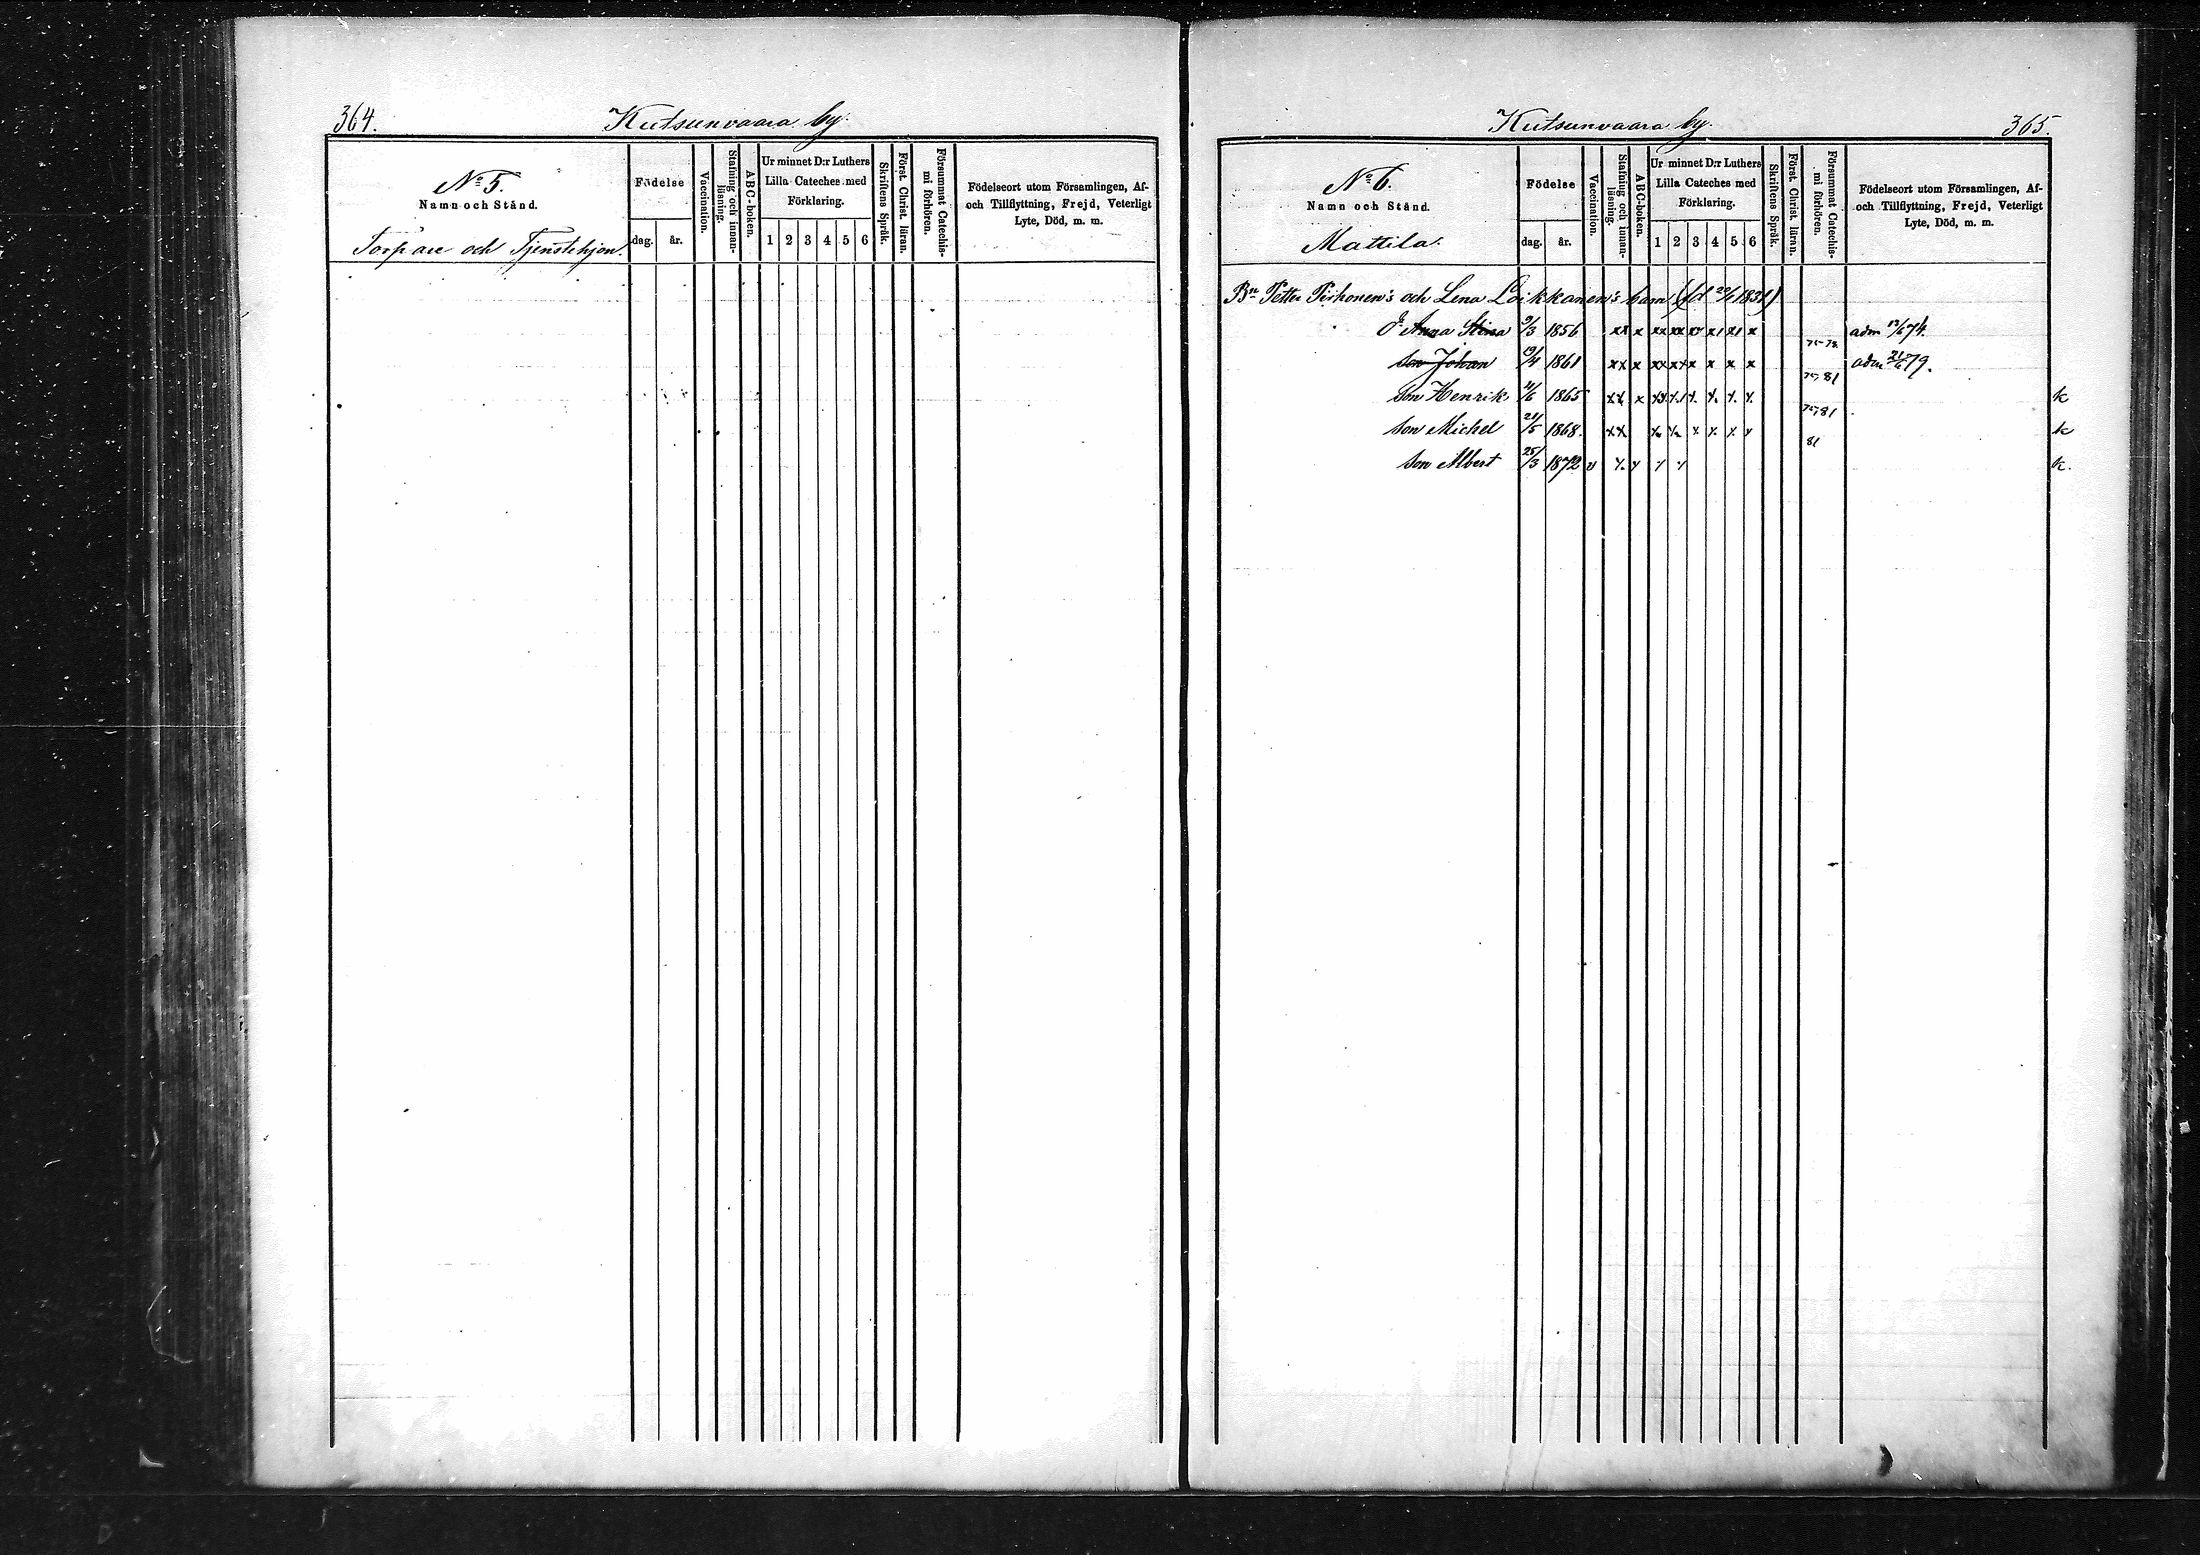 364.
Kutsunvaara by.
No 5.
Namn och Stånd.
Torpare och Tjenstehjon.
Födelse
dag.
år.
Vaccination.
Stafning och innan-
läsning.
ABC-boken.
Ur minnet D:r Luthers
Lilla Cateches med
Förklaring.
1 2 3 4 5 6
Skriftens Språk.
Förstå Christ. läran.
Försummat Catechis-
mi förhören.
Födelseort utom Församlingen, Af-
och Tillflyttning, Frejd, Veterligt
Lyte, Död, m. m.
Kutsunvaara by.
365.
No 6.
Namn och Stånd.
Mattila.
Födelse
dag.
år.
Vaccination.
Stafning och innan-
läsning.
ABC-boken.
Ur minnet D:r Luthers
Lilla Cateches med
Förklaring.
1 2 3 4 5 6
Skriftens Språk.
Först. Christ. läran.
Försummat Catechis-
mi förhören.
Födelseort utom Församlingen, Af-
och Tillflyttning, Frejd, Veterligt
Lyte, Död, m. m.
Bn Petter Pirhonen's och Lena Loikkanen's barn (fd 1831)
d Anna Stina 9/3 1856 xx x xx xx x x x x adm 74.
son Johan 19/4 1861 xx x xx xx x x x x 81 adm 21/6 79.
son Henrik 11/6 1865 xx x xx x x x x x 81 k
son Michel 21/5 1868. xx x x x x x x 81 k
son Albert 25/3 1872 v x x x x k.